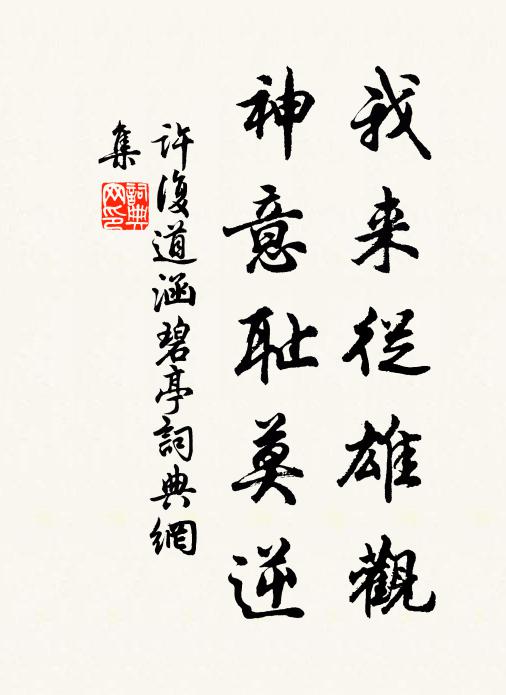 我来從雄觀
神意耻莫逆
許復道涵碧亭詞典網
集
詞典
网印